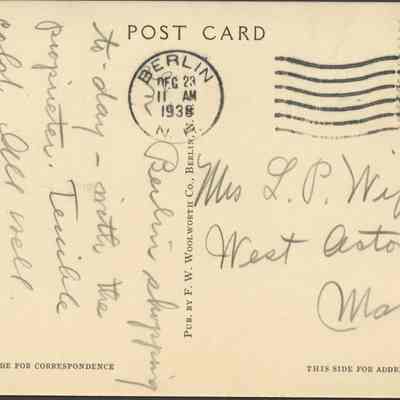 POST CARD
BERLIN
DEC 23
11 AM
1938
N
In Berlin shopping
to-day - with the
proprietor. Terrible
cold. All well.
PUB. BY F. W. WOOLWORTH CO., BERLIN, N.
Mrs L. P.
West
DE FOR CORRESPONDENCE
THIS SIDE FOR ADDRE